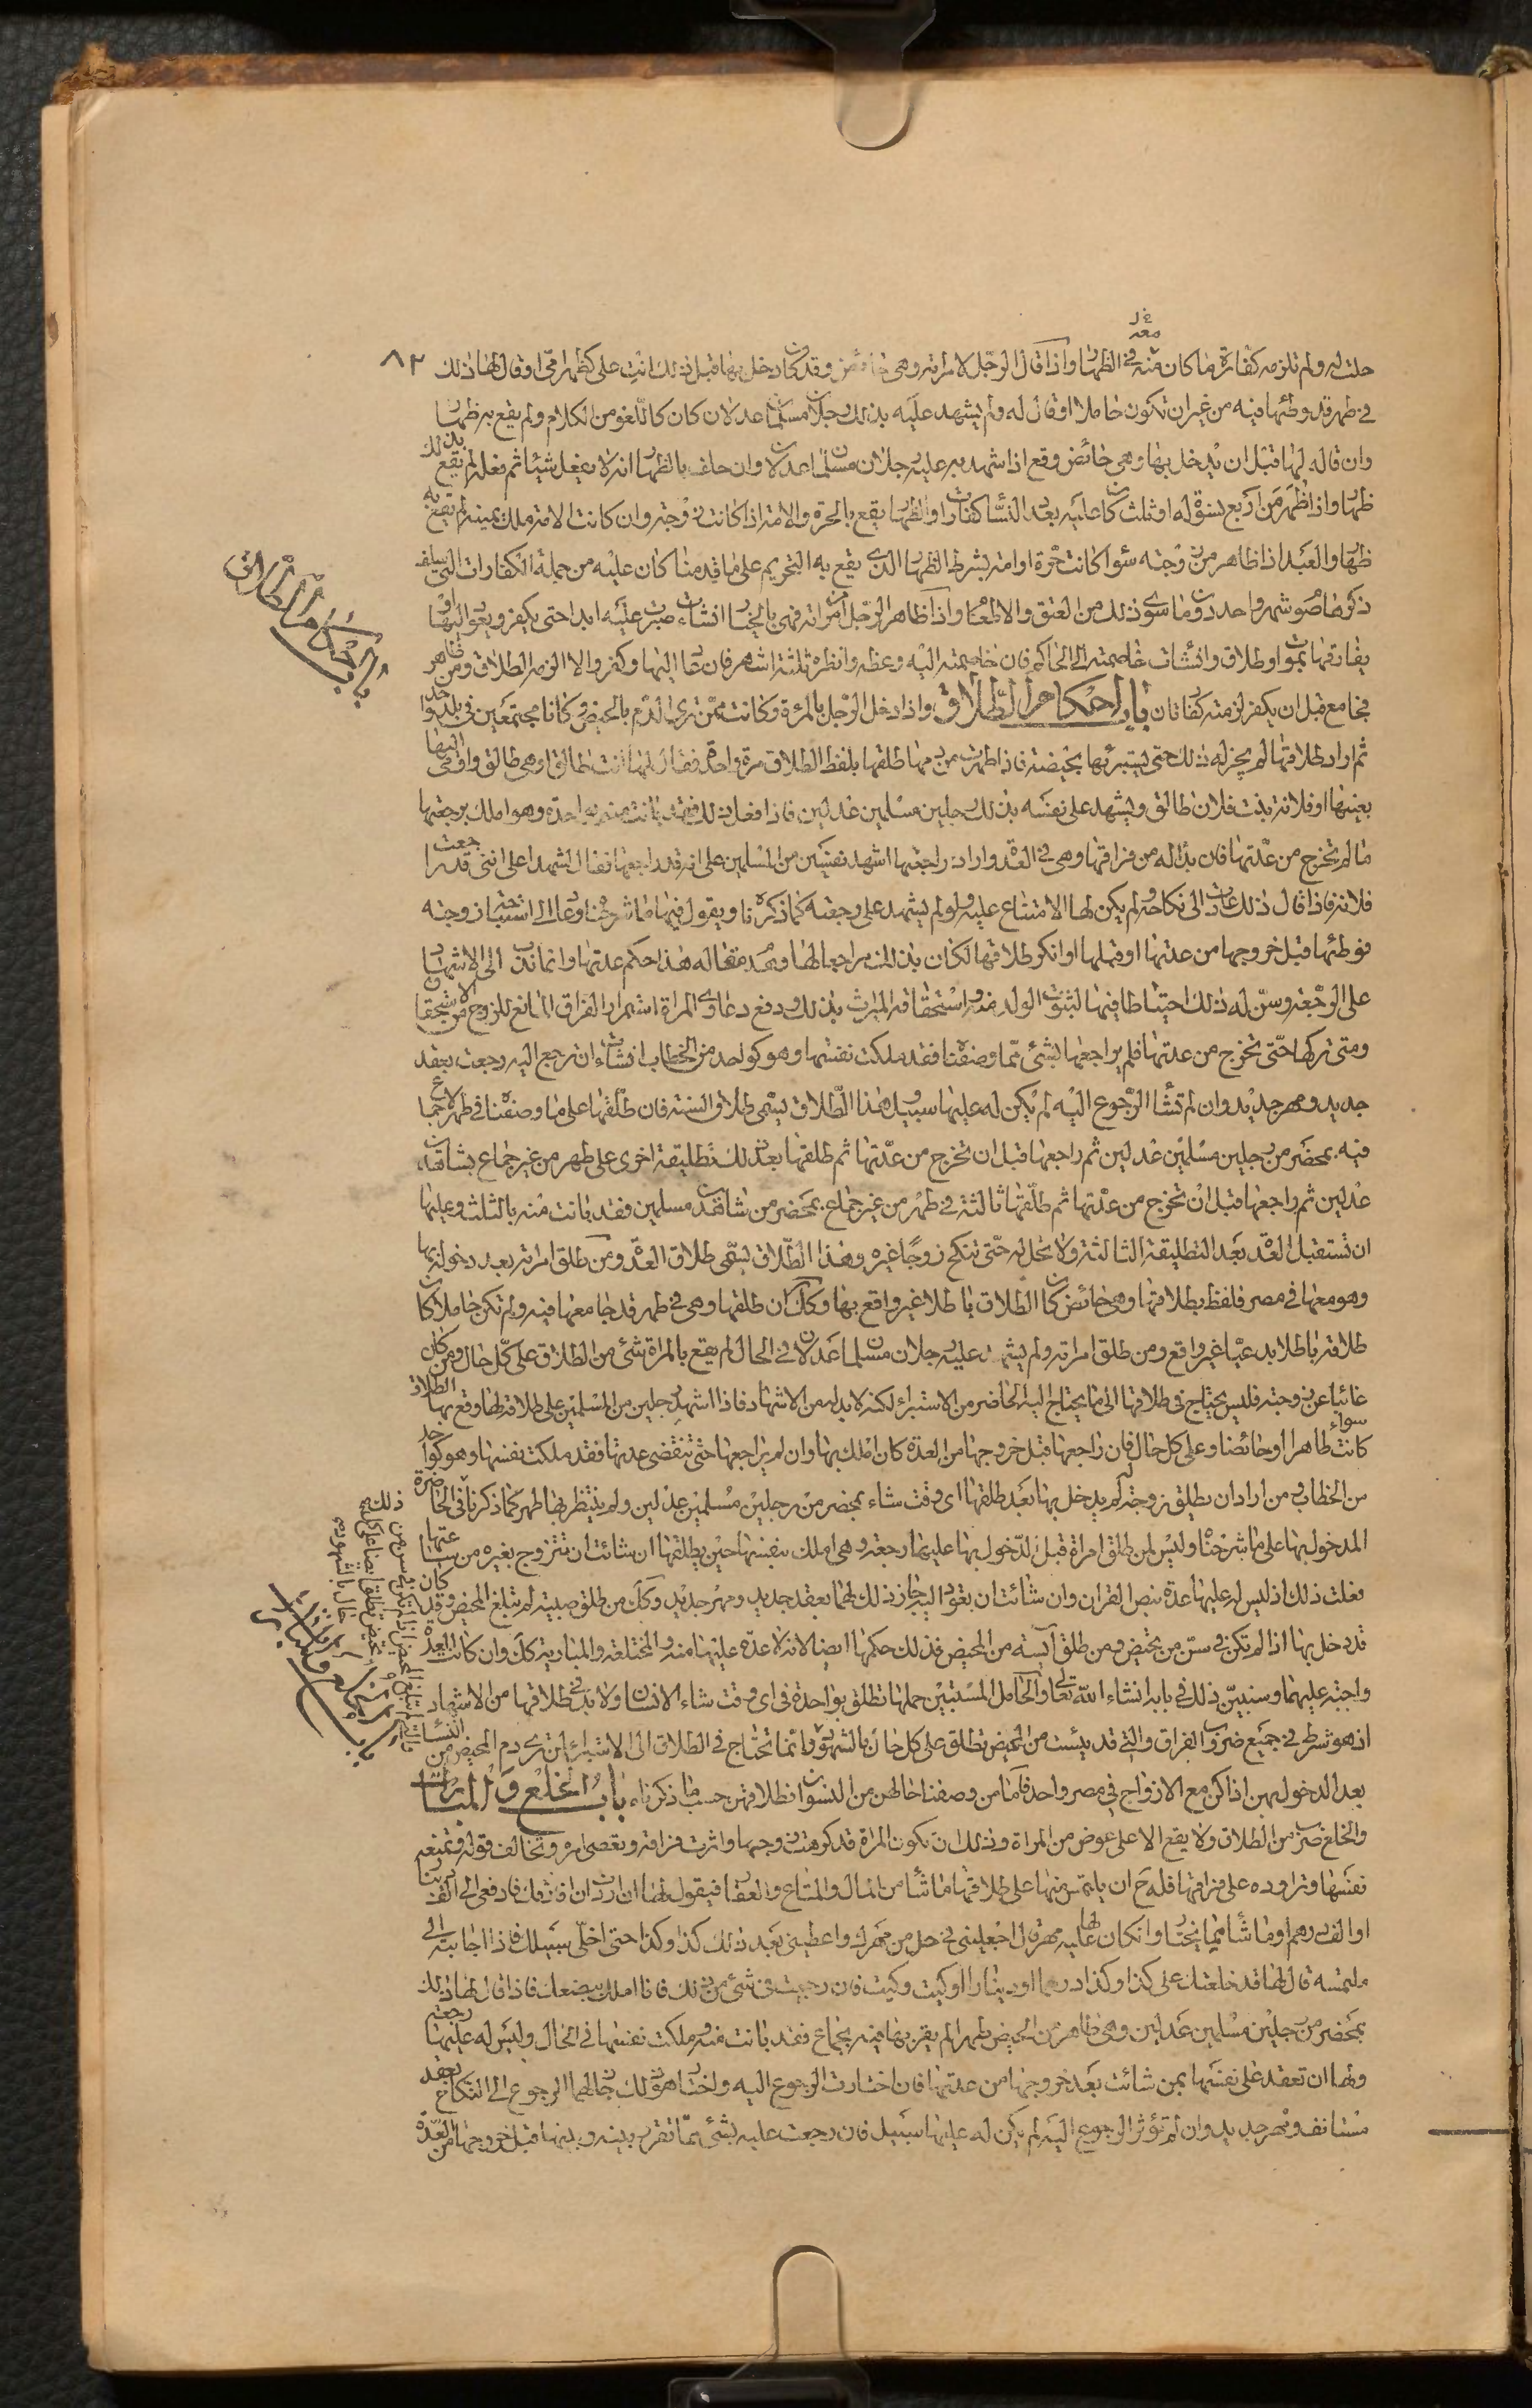 معه
٨٢
حلت له ولم تلزمه كفارة ما كان منه في الظهار واذا قال الرجل لامراته وهي حائض وقد كان دخل بها قبل ذلك انت علي كظهر امي او قال لها ذلك
في طهر قد وطئها فيه من غير ان تكون حاملا او قال له ولم يشهد عليه بذلك رجلان مسلمان عدلان كان كاللغو من الكلام ولم يقع به ظهار
وان قاله لها قبل ان يدخل بها وهي حائض وقع اذا شهد به عليه رجلان مسلمان عدلان وان حلف بالظهار انه لا يفعل شيئا ثم فعله لم يقع بذلك
ظهار واذا ظهر من اربع نسوة له او ثلث كان عليه بعدد النساء كفارات والظهار يقع بالحرة والامة اذا كانت زوجته وان كانت الامة ملك يمينه لم يقع به
ظهار والعبد اذا ظاهر من زوجته سواء كانت حرة او امة بشرط الظهار الذي يقع به التحريم على ما قدمناه كان عليه من جملة الكفارات التي سلف
ذكرها صوم شهر واحد دون ما سوى ذلك من العتق والاطعام واذا ظاهر الرجل امراته فهي بالخيار ان شاءت صبرت عليه ابدا حتى يكفر ويعود اليها او
يفارقها بموت او طلاق وان شاءت خاصمته الى الحاكم فان خاصمته اليه وعظه وانظره ثلثة اشهر فان عاد اليها وكفر والا الزمه الطلاق ومن ظاهر
فجامع قبل ان يكفر لزمته كفارتان باب احكام الطلاق واذا دخل الرجل بالمرءة وكانت ممن ترى الدم بالحيض وكانا مجتمعين في بلد واحد
ثم اراد طلاقها لم يجز له ذلك حتى يستبرئها بحيضة فاذا طهرت من دمها طلقها بلفظ الطلاق مرة واحدة فقال لها انت طالق او هي طالق واومى اليها
بعينها او فلانة بنت فلان طالق ويشهد على نفسه بذلك رجلين مسلمين عدلين فاذا فعل ذلك فقد بانت منه بواحدة وهو املك برجعتها
ما لم تخرج من عدتها فان بدا له من فراقها وهي في العدة واراد مراجعتها اشهد نفسين من المسلمين على انه قد راجعها فقال اشهدا على انني قد راجعت
فلانة فاذا قال ذلك عادت الى نكاحه ولم يكن لها الامتناع عليه ولو لم يشهد على رجعته كما ذكرناه ويقول فيها ما شرحناه وعاد الى استباحة زوجته
فوطئها قبل خروجها من عدتها او قبلها او انكر طلاقها لكان بذلك مراجعا لها وهدم فعاله هذا حكم عدتها وانما ندب الى الاشهاد
على الرجعة وسن له ذلك احتياطا فيها لثبوت الولد منه واستحقاقه الميراث بذلك ودفع دعاوي المراة استمرار الفراق المانع للزوج من الاستحقاق
ومتى تركها حتى تخرج من عدتها فلم يراجعها بشئ مما وصفناه فقد ملكت نفسها وهو كواحد من الخطاب ان شاءت ان ترجع اليه رجعت بعقد
جديد ومهر جديد وان لم تشا الرجوع اليه لم يكن له عليها سبيل وهذا الطلاق يسمى طلاق السنة فان طلقها على ما وصفناه في طهر لا جماع
فيه بمحضر من رجلين مسلمين عدلين ثم راجعها قبل ان تخرج من عدتها ثم طلقها بعد ذلك تطليقة اخرى على طهر من غير جماع بشاهدين
عدلين ثم راجعها قبل ان تخرج من عدتها ثم طلقها ثالثة في طهر من غير جماع بمحضر من شاهدين مسلمين فقد بانت منه بالثلث وعليها
ان تستقبل العدة بعد التطليقة الثالثة ولا تحل له حتى تنكح زوجا غيره وهذا الطلاق يسمى طلاق العدة ومن طلق امراته بعد دخوله بها
وهو معها في مصر فلفظ بطلاقها وهي حائض كان الطلاق باطلا غير واقع بها وكك ان طلقها وهي في طهر قد جامعها فيه ولم تكن حاملا كان
طلاقه باطلا بدعيا غير واقع ومن طلق امراته ولم يشهد عليه رجلان مسلمان عدلان في الحال لم يقع بالمراة شئ من الطلاق على كل حال ومن كان
غائبا عن زوجته فليس يحتاج في طلاقها الى ما يحتاج اليه الحاضر من الاستبراء لكنه لا بد له من الاشهاد فاذا اشهد رجلين من المسلمين على طلاقه لها وقع بها الطلاق
سواء كانت طاهرا او حائضا وعلى كل حال فان راجعها قبل خروجها من العدة كان املك بها وان لم يراجعها حتى تنقضي عدتها فقد ملكت نفسها وهو كواحد
من الخطاب ومن اراد ان يطلق زوجة لم يدخل بها بعد طلقها اي وقت شاء بمحضر من رجلين مسلمين عدلين ولم ينتظر بها طهر كما ذكرناه في الحاضرة
المدخول بها على ما شرحناه وليس لمن طلق امراة قبل الدخول بها عليها رجعة وهي املك بنفسها حين يطلقها ان شائت ان تتزوج بغيره من ساعتها
فعلت ذلك اذ ليس له عليها عدة بنص القران وان شائت ان يعود اليه جاز ذلك لهما بعقد جديد ومهر جديد وكك من طلق صبية لم تبلغ المحيض وقد كان
قد دخل بها اذا لم تكن في سن من تحيض ومن طلق آيسة من المحيض فذلك حكمها ايضا لانه لا عدة عليها منه والمختلعة والمبارية كك وان كانت العدة
واجبة عليهما وسنبين ذلك في بابه انشاء الله تعالى والحامل المستبين حملها تطلق بواحدة في اي وقت شاء الانسان ولا بد في طلاقها من الاشهاد
اذ هو شرط في جميع ضروب الفراق والتي قد يئست من المحيض تطلق على كل حال بالشهود وانما تحتاج في الطلاق الى الاستبراء لمن ترى دم المحيض من النساء
بعد الدخول بهن اذا كن مع الازواج في مصر واحد فاما من وصفنا حالهن من النسوان فطلاقهن حسب ما ذكرناه باب الخلع والمباراة
والخلع ضرب من الطلاق ولا يقع الا على عوض من المراة وذلك ان تكون المراة قد كرهت زوجها واثرت فراقه وتعصى امره وتخالف قوله وتمنعه
نفسها وتراوده على فراقها فله ح ان يلتمس منها على طلاقها ما شاء من المال والمتاع والعقار فيقول لها ان اردت ان افارقك فادفعي الي الف دينار
او الف درهم او ما شاء مما يختار وان كان لها عليه مهر قال اجعليني في حل من مهرك واعطيني بعد ذلك كذا وكذا حتى اخلي سبيلك فاذا اجابته الى
ملتمسه قال لها قد خلعتك على كذا وكذا درهما او دينارا او كيت وكيت فان رجعت في شئ من ذلك فانا املك ببضعك فاذا قال لها ذلك
بمحضر من رجلين مسلمين عدلين وهي طاهر من الحيض طهرا لم يقربها فيه بجماع فقد بانت منه وملكت نفسها في الحال وليس له عليها رجعة
ولها ان تعقد على نفسها لمن شائت بعد خروجها من عدتها فان اختارت الرجوع اليه واختار هو ذلك جاز لهما الرجوع الى النكاح بعقد
مستانف ومهر جديد وان لم تؤثر الرجوع اليه لم يكن له عليها سبيل فان رجعت عليه بشئ مما تقرر بينه وبينها قبل خروجها من العدة
باب احكام الطلاق
باب الخلع والمباراة